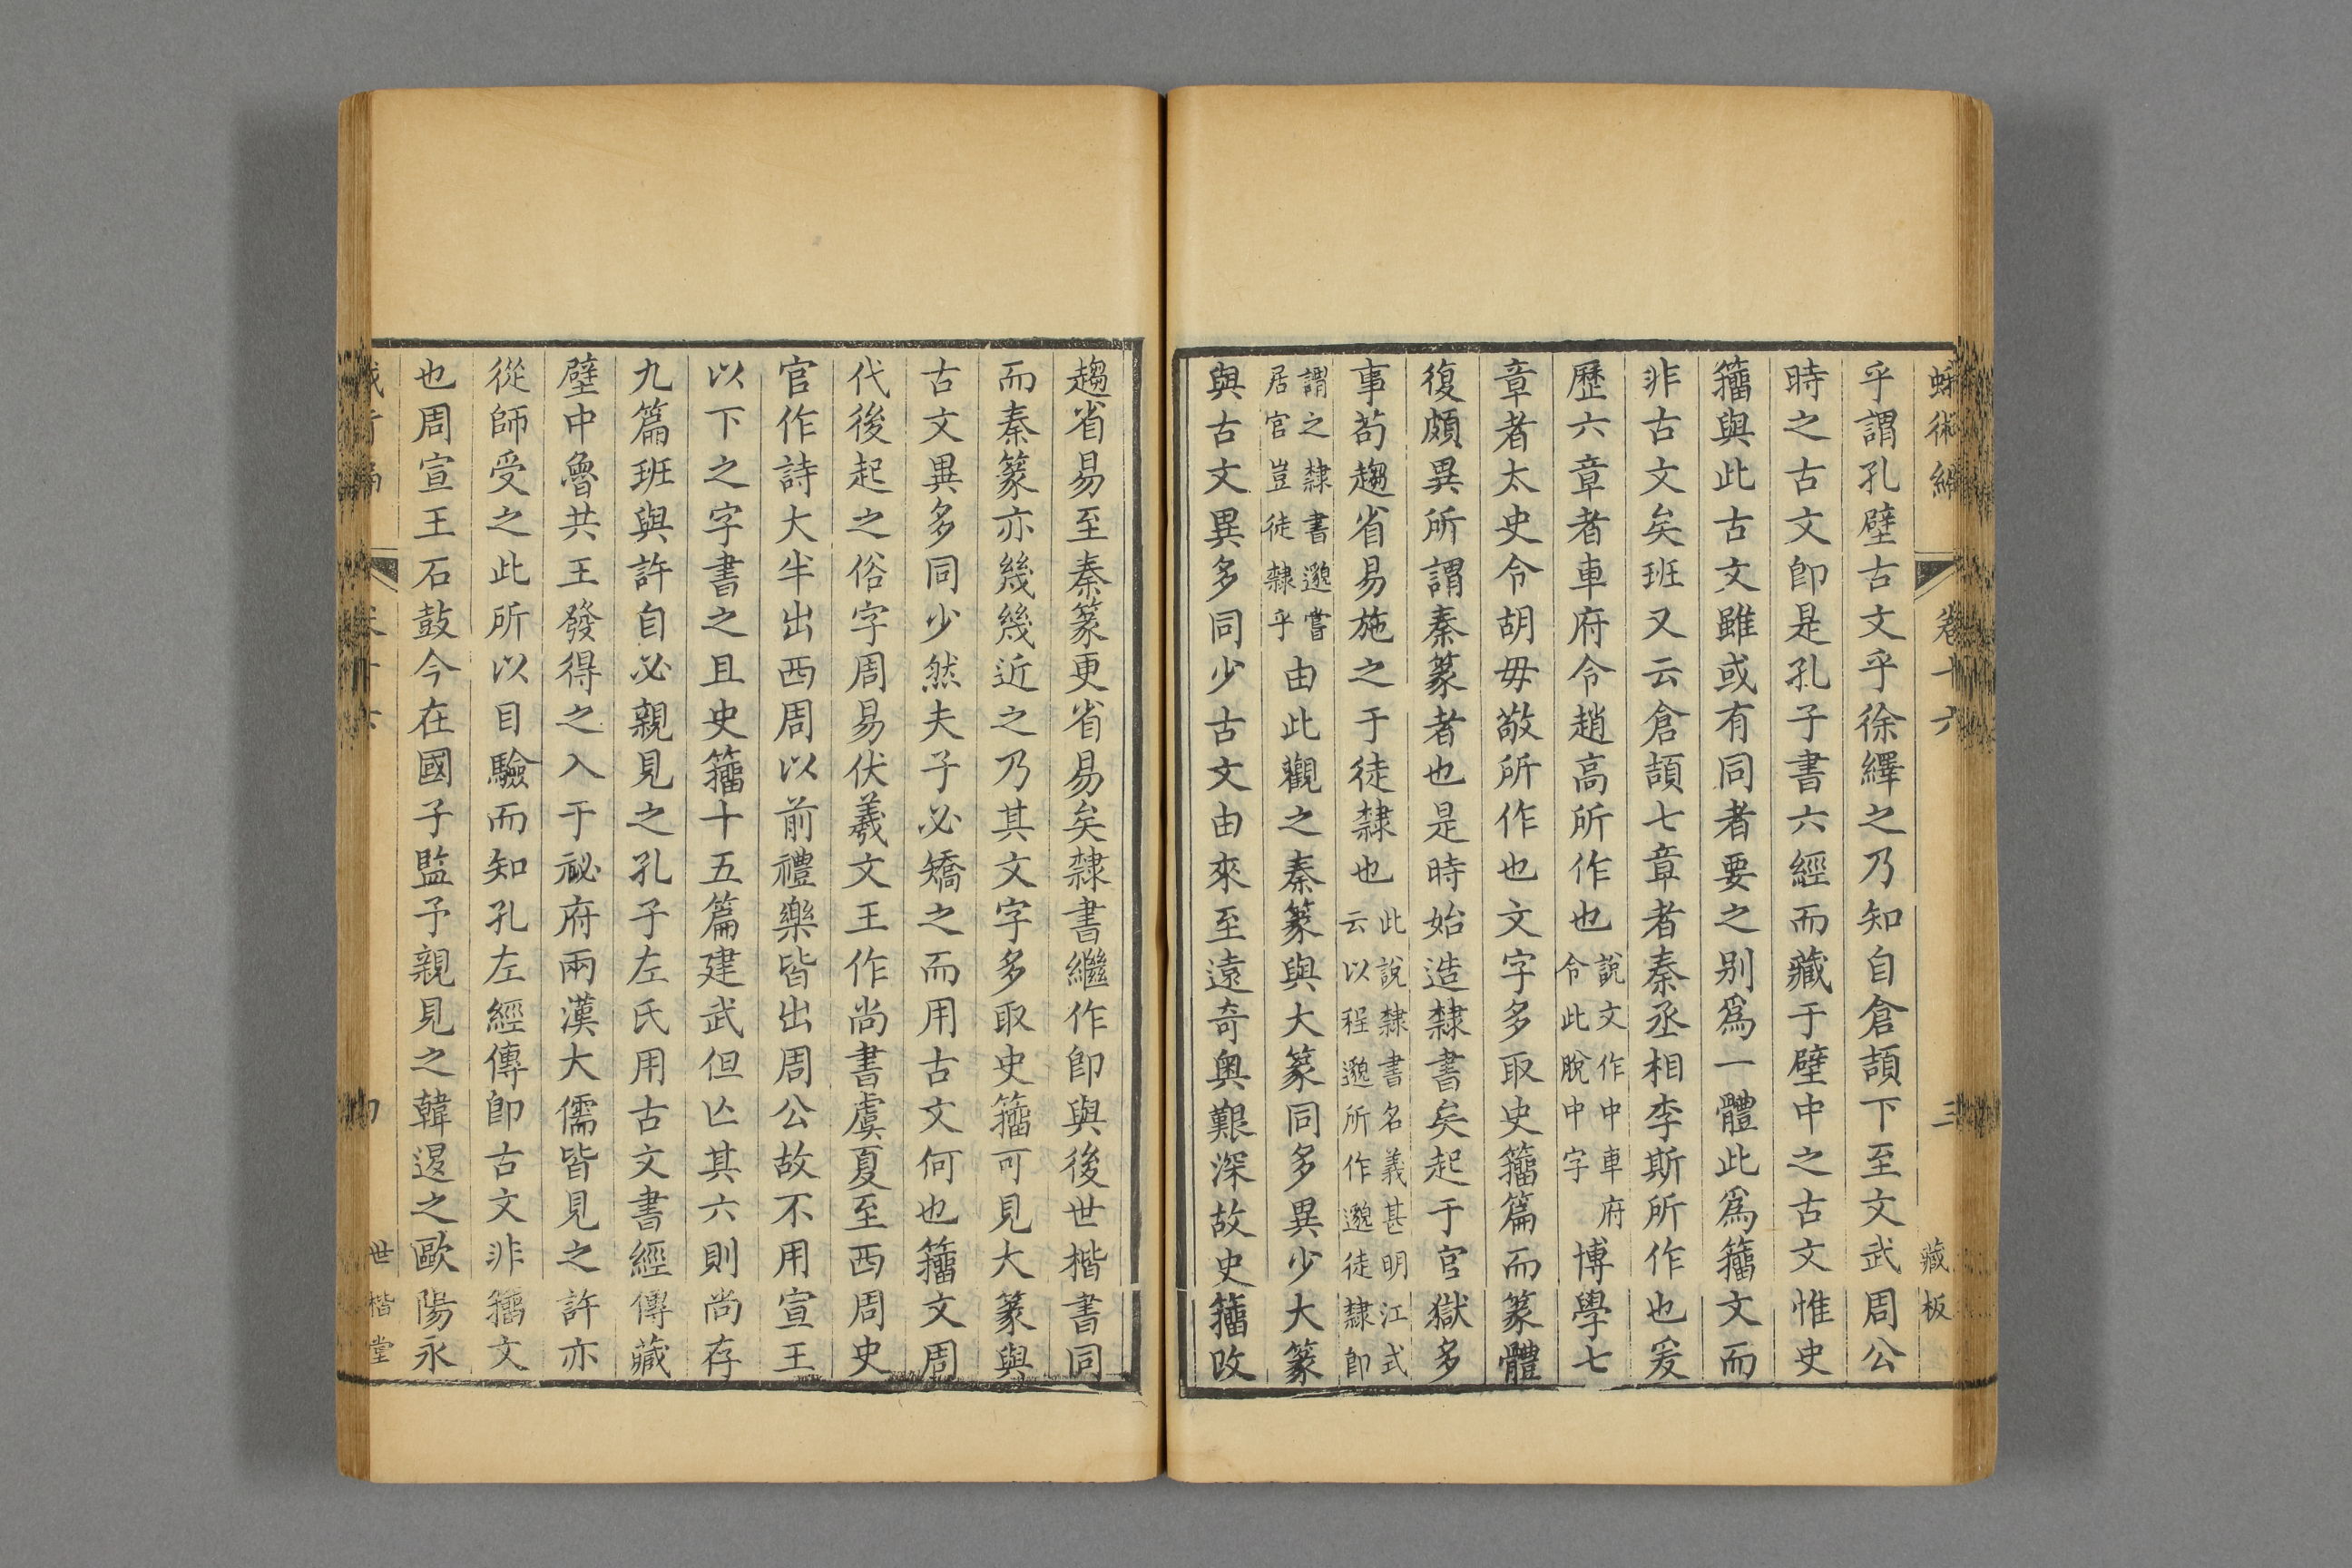 蛾術編 卷十六 三 藏板
乎謂孔壁古文乎徐繹之乃知自倉頡下至文武周公
時之古文卽是孔子書六經而藏于壁中之古文惟史
籀與此古文雖或有同者要之别爲一體此爲籀文而
非古文矣班又云倉頡七章者秦丞相李斯所作也爰
歷六章者車府令趙高所作也說文作中車府令此脫中字博學七
章者太史令胡毋敬所作也文字多取史籀篇而篆體
復頗異所謂秦篆者也是時始造隸書矣起于官獄多
事苟趨省易施之于徒隸也此說隸書名義甚明江式云以程邈所作邈徒隸卽
謂之隸書邈嘗居官豈徒隸乎由此觀之秦篆與大篆同多異少大篆
與古文異多同少古文由來至遠奇奥艱深故史籀改
趨省易至秦篆更省易矣隸書繼作卽與後世楷書同
而秦篆亦幾幾近之乃其文字多取史籀可見大篆與
古文異多同少然夫子必矯之而用古文何也籀文周
代後起之俗字周易伏羲文王作尚書虞夏至西周史
官作詩大半出西周以前禮樂皆出周公故不用宣王
以下之字書之且史籀十五篇建武但亾其六則尚存
九篇班與許自必親見之孔子左氏用古文書經傳藏
壁中魯共王發得之入于祕府兩漢大儒皆見之許亦
從師受之此所以目驗而知孔左經傳卽古文非籀文
也周宣王石鼓今在國子監予親見之韓退之歐陽永
世楷堂